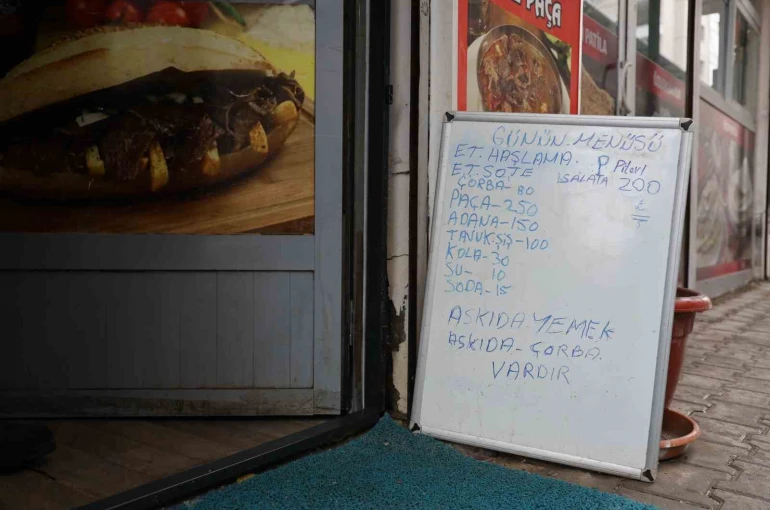 PAÇA
PATİLA
GÜNÜN MENÜSÜ
ET. HAŞLAMA.
P Pilavı
ET. SOTE
SALATA 200
ÇORBA- 80
PAÇA- 250
ADANA- 150
TAVUK ŞİŞ- 100
KOLA- 30
SU- 10
SODA- 15
ASKIDA YEMEK
ASKIDA - ÇORBA.
VARDIR